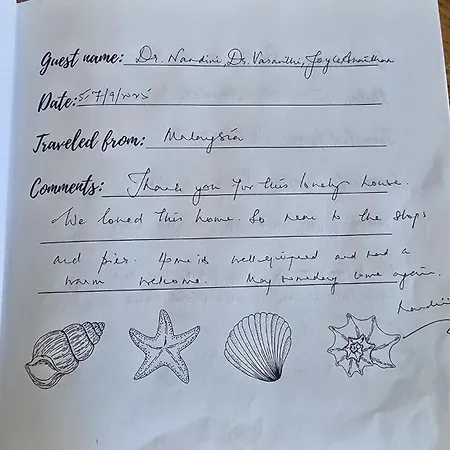 Guest name: Dr. Nandini, Dr. Vasanthi, Joyce
Date: 5-7/9/2025
Traveled from: Malaysia
Comments: Thank you for this lovely house.
We loved this home. So near to the shops
and pier. Home is well equiped and had a
warm welcome. May someday come again.
Nandini